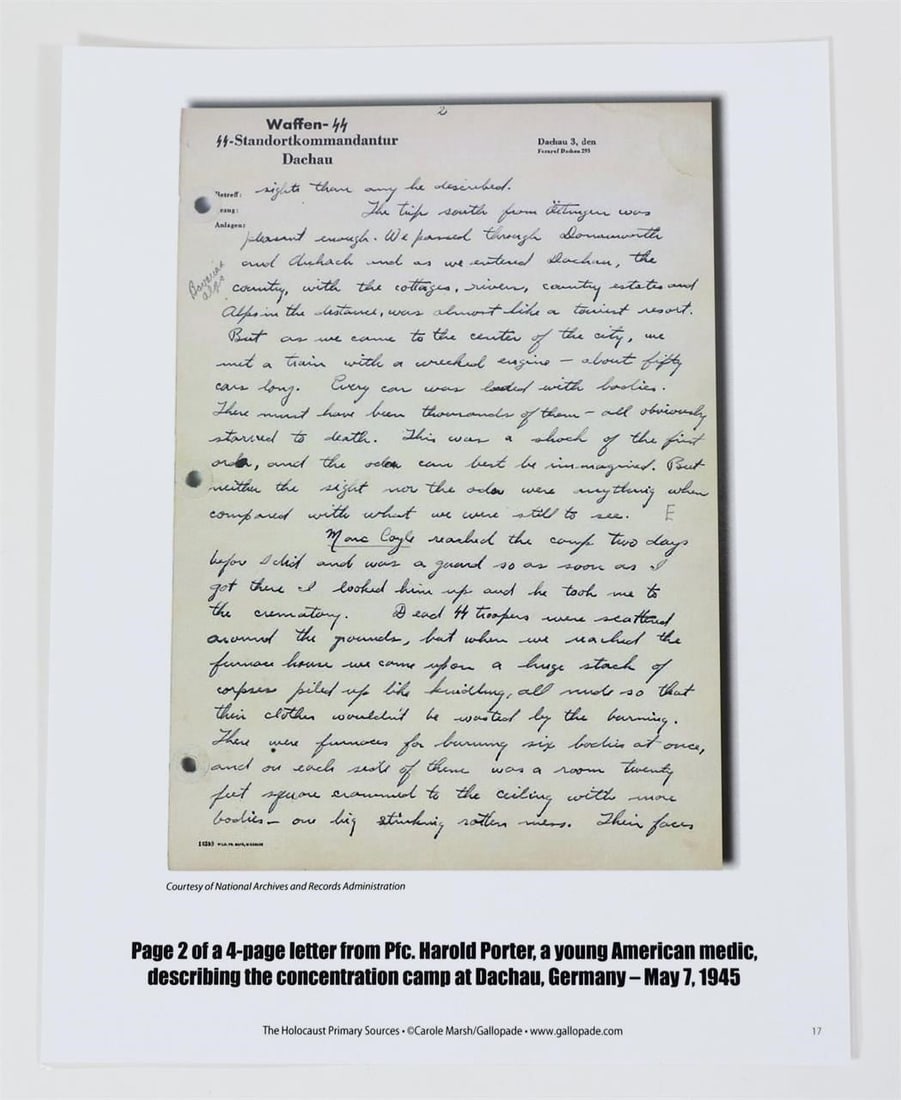 2
Waffen-SS
SS-Standortkommandantur
Dachau
Dachau 3, den
Fernruf Dachau 293
Betreff:
Bezug:
Anlagen:
sights than any he described.
The trip south from Öttingen was
pleasant enough. We passed through Donauworth
and Aichach and as we entered Dachau, the
country, with the cottages, rivers, country estates and
Bavarian
alps
Alps in the distance, was almost like a tourist resort.
But as we came to the center of the city, we
met a train with a wrecked engine – about fifty
cars long. Every car was loaded with bodies.
There must have been thousands of them – all obviously
starved to death. This was a shock of the first
order, and the odor can best be immagined. But
neither the sight nor the odor were anything when
compared with what we were still to see. E
Marc Coyle reached the camp two days
before I did and was a guard so as soon as I
got there I looked him up and he took me to
the crematory. Dead SS troopers were scattered
around the grounds, but when we reached the
furnace house we came upon a huge stack of
corpses piled up like kindling, all nude so that
their clothes wouldn't be wasted by the burning.
There were furnaces for burning six bodies at once,
and on each side of them was a room twenty
feet square crammed to the ceiling with more
bodies – one big stinking rotten mess. Their faces
Courtesy of National Archives and Records Administration
Page 2 of a 4-page letter from Pfc. Harold Porter, a young American medic,
describing the concentration camp at Dachau, Germany – May 7, 1945
The Holocaust Primary Sources • ©Carole Marsh/Gallopade • www.gallopade.com
17